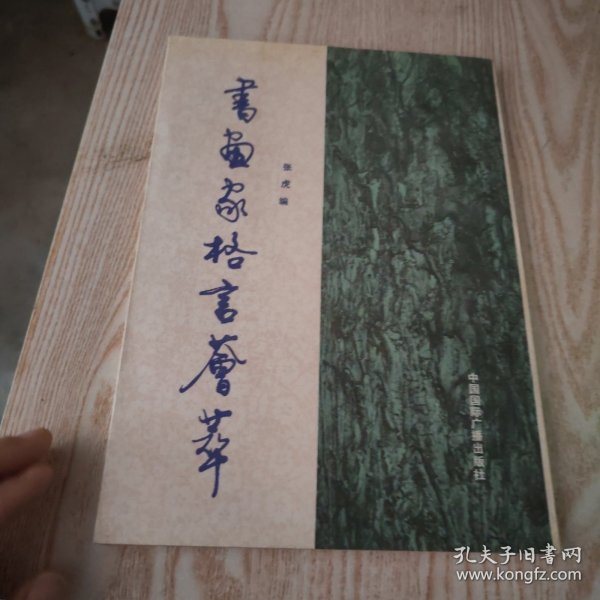 書画家格言薈萃
张虎编
中国国际广播出版社
孔夫子旧书网
www.kongfz.com